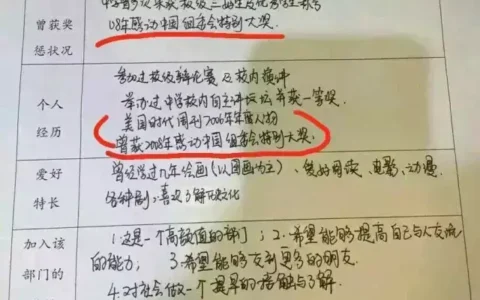 曾获奖
惩状况
08年感动中国组委会特别大奖
个人
经历
参加过校级辩论赛及校内演讲
举办过中学校内自主讲坛并获一等奖.
美国时代周刊2006年年度人物
曾获2008年感动中国组委会特别大奖.
爱好
特长
曾经学过几年绘画(以国画为主)、爱好阅读、电影、动漫
各种剧;喜欢了解
加入该
部门的
1.这是一个高颜值的部门;2.希望能够提高自己与人交流
的能力, 3.希望能够交到更多的朋友.
4.对社会做一个提早的接触与了解.